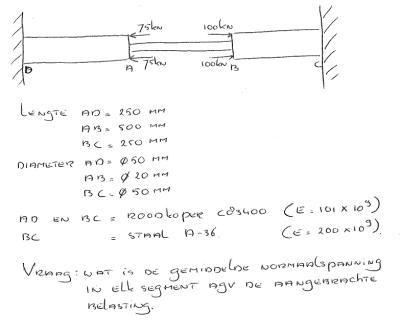 75kN 100kN
75kN 100kN
D A B C
LENGTE AD = 250 MM
AB = 500 MM
BC = 250 MM
DIAMETER AD = Ø50 MM
AB = Ø 20 MM
BC = Ø 50 MM
AD EN BC = ROOD KOPER C83400 (E = 101 x 10⁹)
BC = STAAL A-36. (E = 200 x 10⁹).
VRAAG: WAT IS DE GEMIDDELDE NORMAALSPANNING
IN ELK SEGMENT AGV DE AANGEBRACHTE
BELASTING.